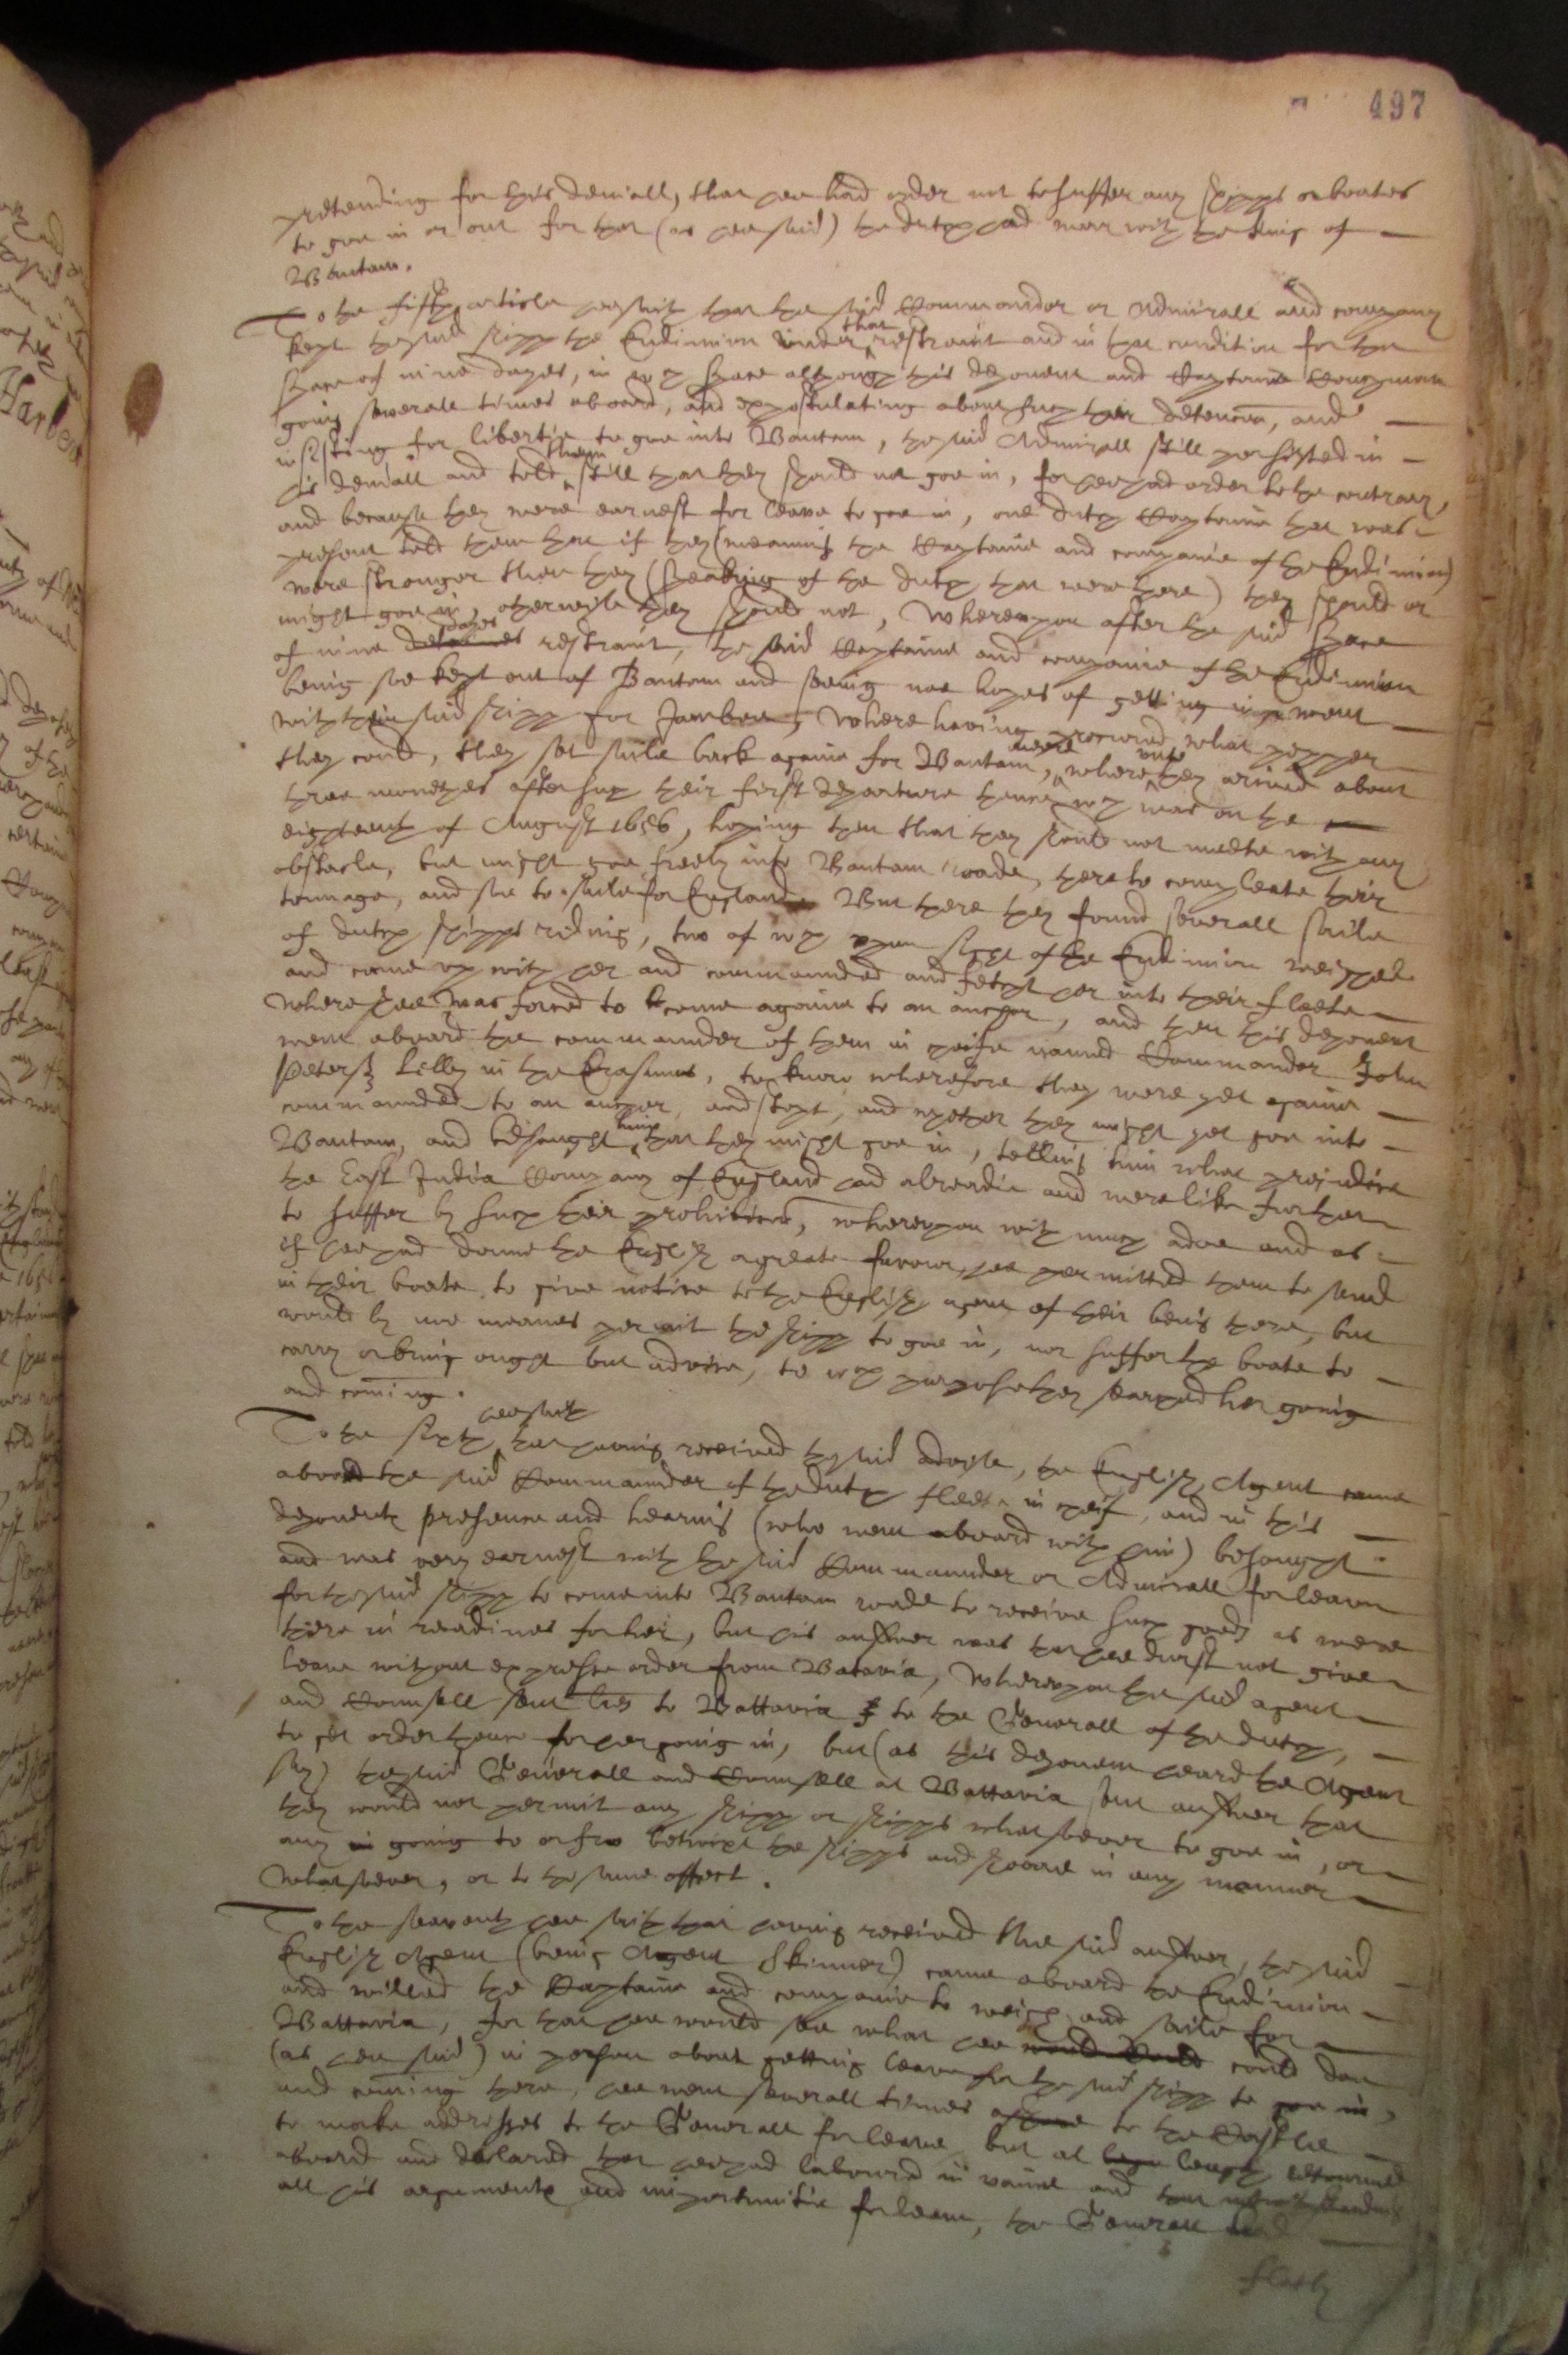 497
pretending for his deniall, that hee had order not to suffer any shipps or boates
to goe in or out for that (as hee said) the dutch had warr with the King of
Bantam.
To the fifth article hee saith that the said Commander or Admirall and company
kept the said shipp the Endimion under that restraint and in that condition for the
space of nine dayes, in wch space although this deponent and Captaine
going severall times aboard, and expostulating about such their detencon, and
insisting for libertie to goe into Bantam, the said Admirall still persisted in
his deniall and told them still that they should not goe in, for hee had order to the contrary,
and because they were earnest for leave to goe in, one dutch Captaine that was
present told them that if they (meaning the Captaine and companie of the Endimion)
were stronger then they (speaking of the dutch that were there) they should or
might goe in, otherwise they should not, Whereupon after the said space
of nine dayes restraint, the said Captaine and companie of the Endimion
being soe kept out of Bantam and seeing noe hopes of getting in, went
with their said shipp for Jambee, Where having procured what pepper
they could, they set saile back againe for Bantam, neere where unto they arived about
three monethes after such their first departure thence wch was on the
eighteenth of August 1656, hoping then that they should not meete with any
obstacle, but might goe freely into Bantam roade, there to compleate their
tonnage, and soe to saile for England. But there they found severall saile
of dutch shipps riding, two of wch upon sight of the Endimion weighed
and came up with her and commanded and fetcht her into their fleete
where shee was forced to come againe to an anchor, and then this deponent
went aboard the commander of them in cheife named Commander John
Peters Lelley in the Erasmus, to know wherefore they were yet againe
commanded to an anchor, and stopt, and whether they might yet goe into
Bantam, and besought him that they might goe in, telling him what prejudice
the East India Company of England had alreadie and were like further
to suffer by such their prohibicon, whereupon with much adoe and as
if hee had donne the English a greate favour, hee permitted them to send
in their boate to give notice to the English agent of their being there, but
would by noe meanes permit the shipp to goe in, nor suffer the boate to
carry or bring ought but advice, to wch purpose they searched her going
and coming.
To the sixth hee saith that having received the said advise, the English Agent came
aboard the said Commander of the dutch fleete in cheif, and in this
deponents presence and hearing (who went aboard with him) besought
and was very earnest with the said Commander or Admirall for leave
for the said shipp to come into Bantam roade to receive such goods as were
there in readines for her, but his answer was that hee durst not give
leave without expresse order from Batavia, Whereupon the said agent
and Counsell sent lres to Battavia to the Generall of the dutch,
to get order thence for her going in, but (as this deponent heard the Agent
say) the said Generall and Counsell at Battavia sent answer that
they would not permit any shipp or shipps whatsoever to goe in, or
any going to or fro betwixt the shipps and shoare in any manner
whatsoever, or to the same effect.
To the seaventh hee saith that having received the said answer, the said
English Agent (being Agent Skinner) came aboard the Endimion
and willed the Captaine and companie to weigh and saile for
Battavia, for that hee would see what hee could doe
(as hee said) in person about getting leave for the said shipp to goe in,
and coming there, hee went severall times ashore to the Castle
to make addresses to the Generall for leave, but at length retourned
aboard and declared that hee had laboured in vaine and that notwithstanding
all his arguments and importunitie for leave, the Generall had
flatly